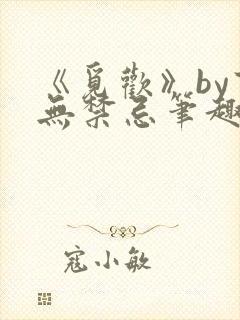 《覓歡》by
無禁忌筆趣
寇小敏